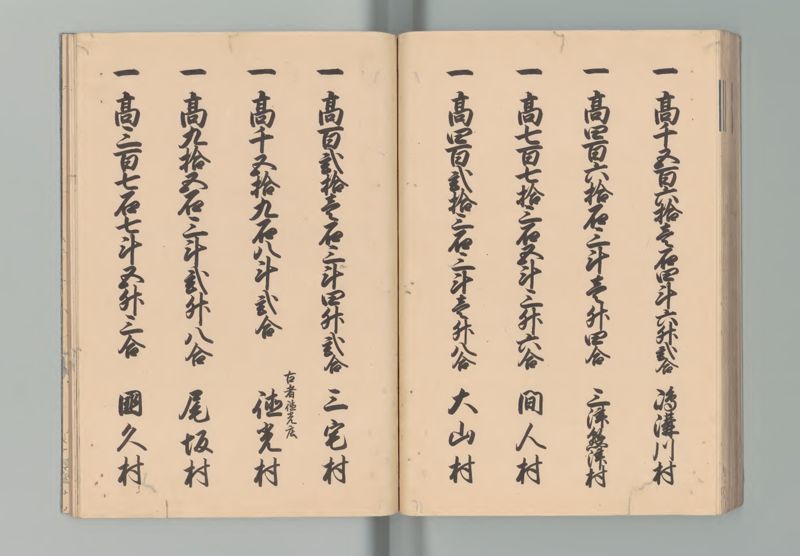 一 高千五百六拾壱石四斗六升弐合 嶋溝川村
一 高四百六拾石三斗壱升四合 三津熊津村
一 高七百七拾三石五斗三升六合 間人村
一 高四百弐拾三石三斗壱升八合 大山村
一 高百弐拾壱石三斗四升弐合 三宅村
古者徳光庄
一 高千五拾九石八斗弐合 徳光村
一 高九拾五石三斗弐升八合 尾坂村
一 高三百七石七斗五升三合 國久村